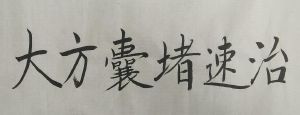 大方囊堵速治